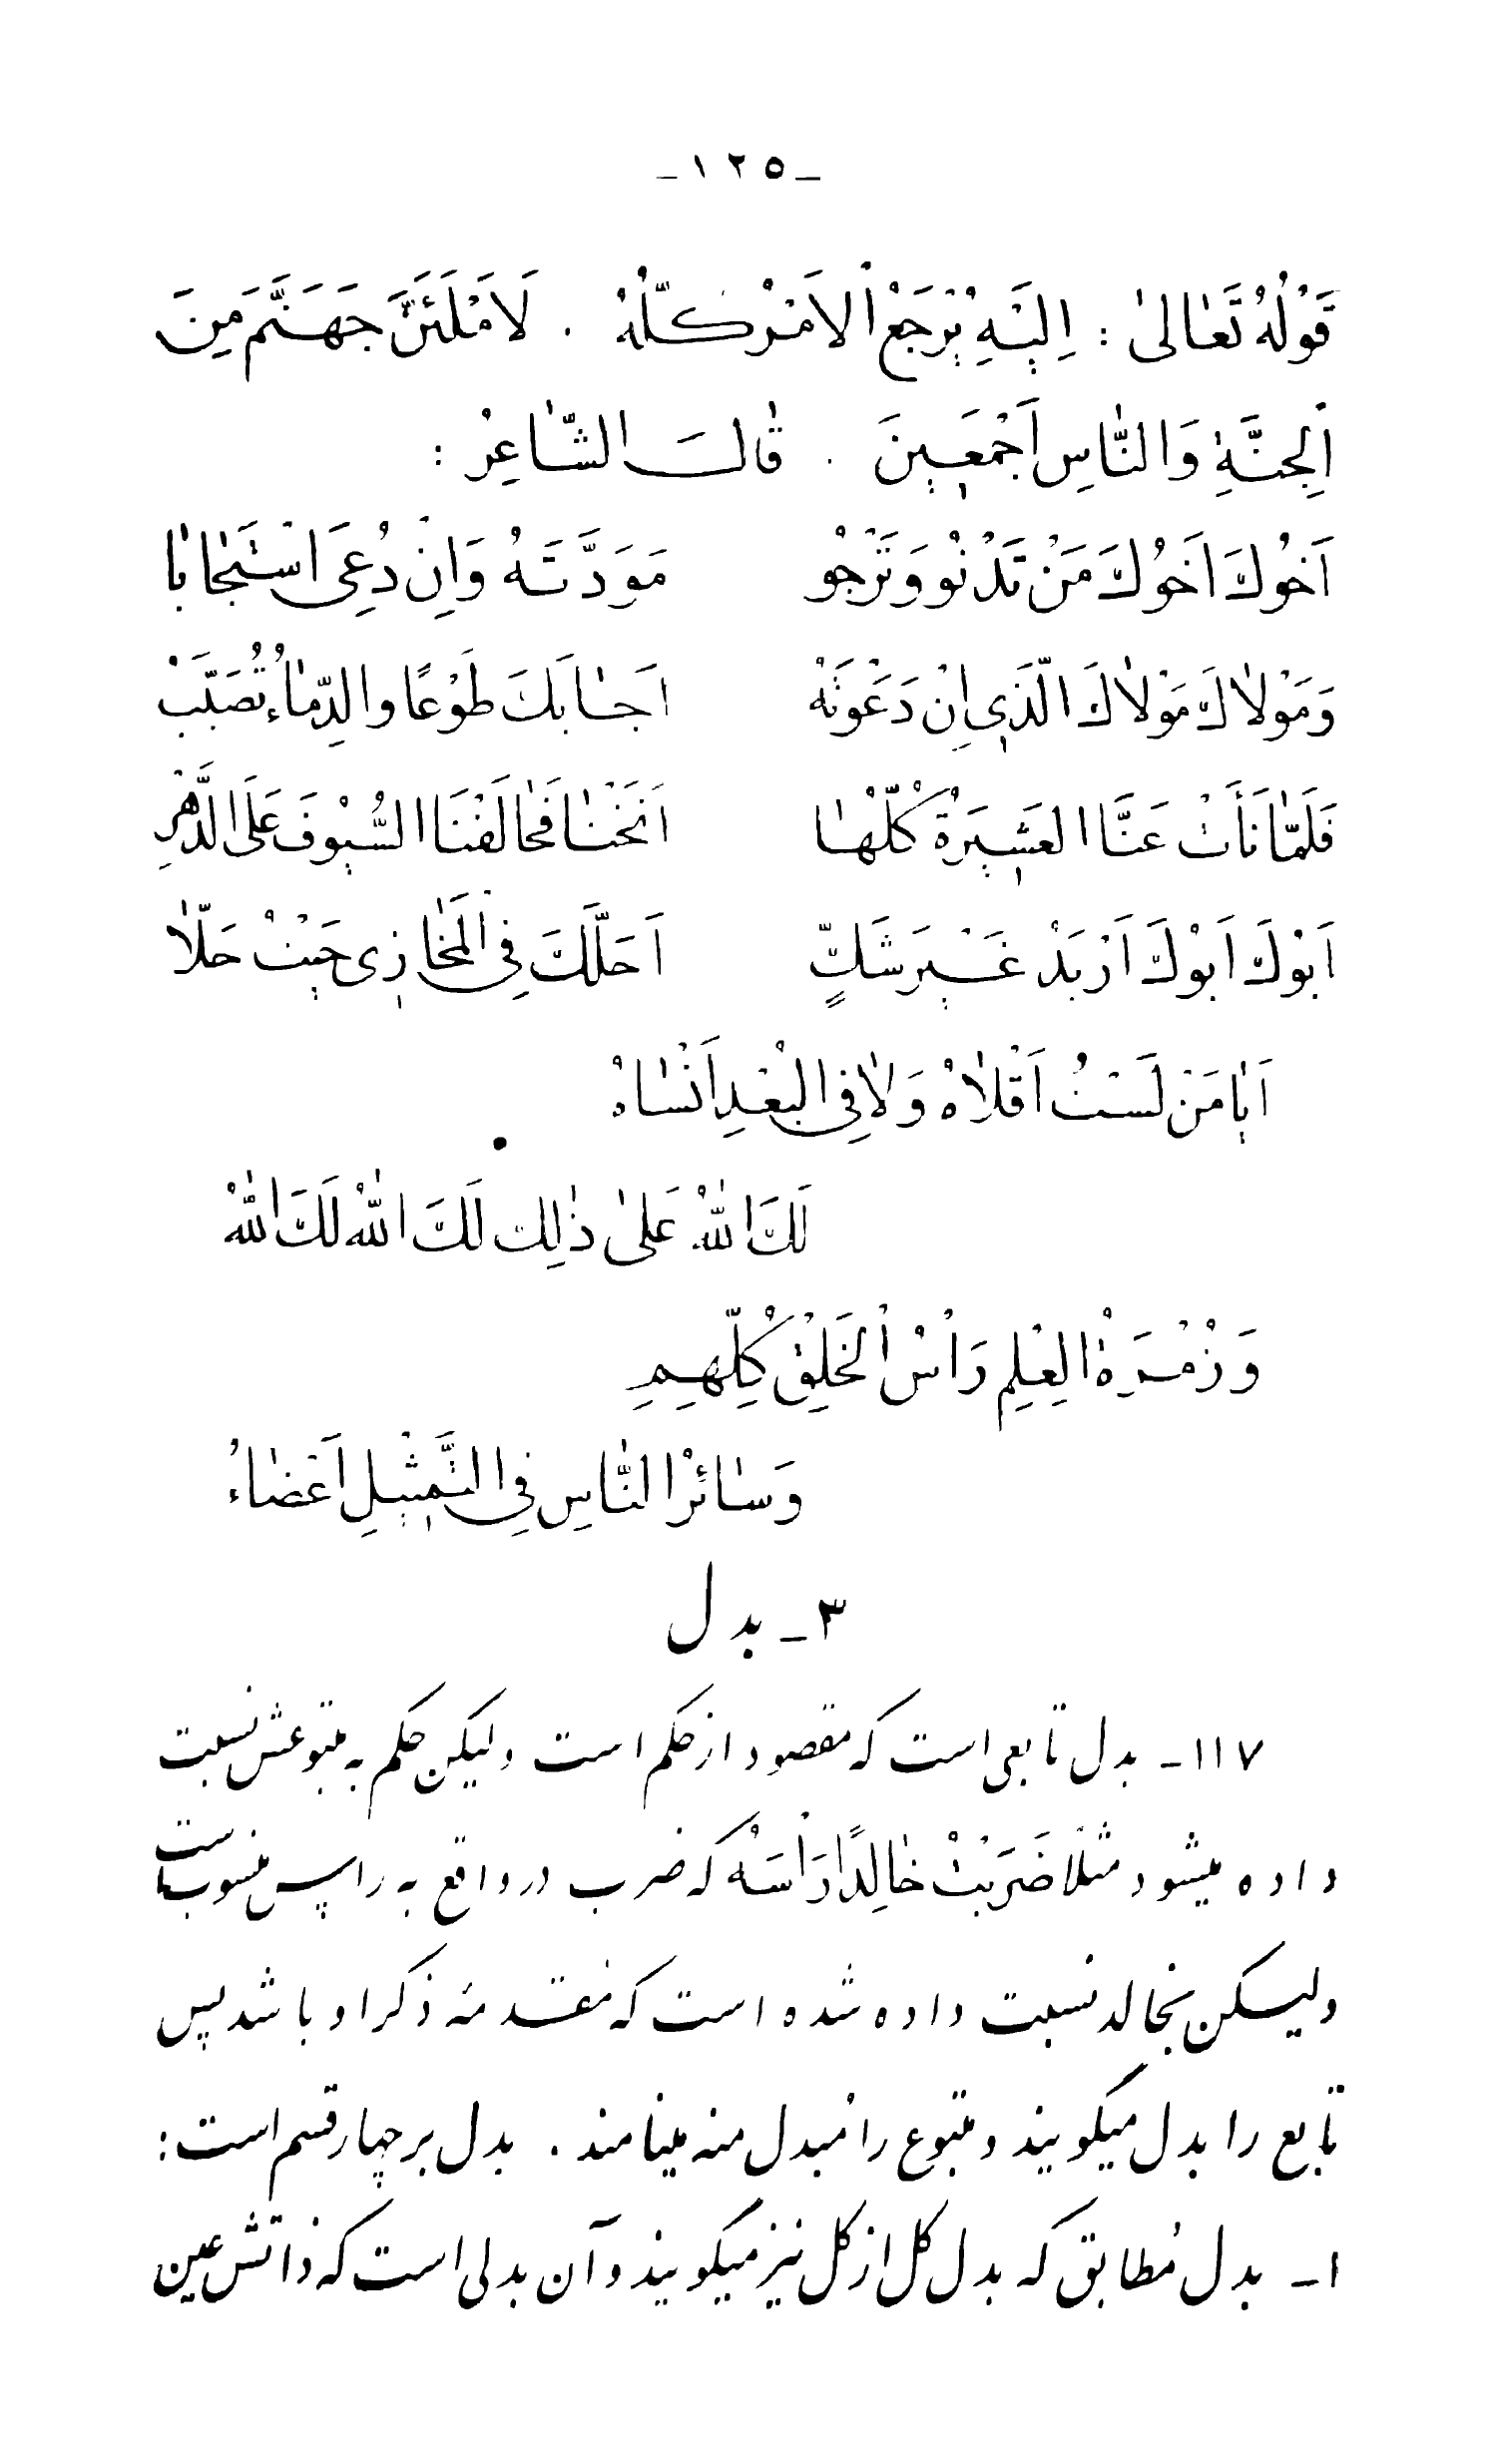 ـ١٢٥ـ
قَوْلُهُ تَعٰالىٰ : اِلَيْهِ يُرْجَعُ الْاَمْرُ كُلُّهُ . لَاَمْلَئَنَّ جَهَنَّمَ مِنَ
الْجِنَّةِ وَالنّٰاسِ اَجْمَعينَ . قٰالَ الشّٰاعِرُ :
اَخُوكَ اَخُوكَ مَنْ تَدْنُو وَتَرْجُو مَوَدَّتَهُ وَاِنْ دُعِىَ اسْتَجٰابٰا
وَمَوْلاٰكَ مَوْلاٰكَ الَّذى اِنْ دَعَوْتَهُ اَجٰابَكَ طَوْعًا والدِّمٰاءُ تُصَبَّبُ
فَلَمّٰا نَأَتْ عَنَّا العَشيرَةُ كُلُّهٰا اَنَخْنٰا فَحٰالَفْنَا السُّيُوفَ عَلَى الدَّهْرِ
اَبُوكَ اَبُوكَ اَرْبَدُ غَيْرَ شَكٍّ اَحَلَّكَ فِى الْمَخٰازى حَيْثُ حَلّاٰ
اَيٰا مَنْ لَسْتُ اَقْلاٰهُ وَلاٰ فِى الْبُعْدِ اَنْسٰاهُ
لَكَ اللّٰهُ عَلىٰ ذٰلِك لَكَ اللّٰهُ لَكَ اللّٰهُ
وَزُمْرَةُ الْعِلْمِ رَاْسُ الْخَلْقِ كُلِّهِمِ
وَسٰائِرُ النّٰاسِ فِى التَّمْثيلِ اَعْضٰاءُ
٣ ـ بدل
١١٧ ـ بدل تابعى است که مقصود از حکم است وليکن حکم به متبوعش نسبت
داده ميشود مثلاً ضَرَبْتُ خٰالِدًا رَاْسَهُ که ضرب در واقع به راس منسوبست
وليکن بخالد نسبت داده شده است که مقدمه ذکر او باشد پس
تابع را بدل ميگويند و متبوع را مُبدل منه مينامند . بدل بر چهار قسم است :
١ ـ بدل مُطابق که بدل کل از کل نيز ميگويند و آن بدلى است که ذاتش عين